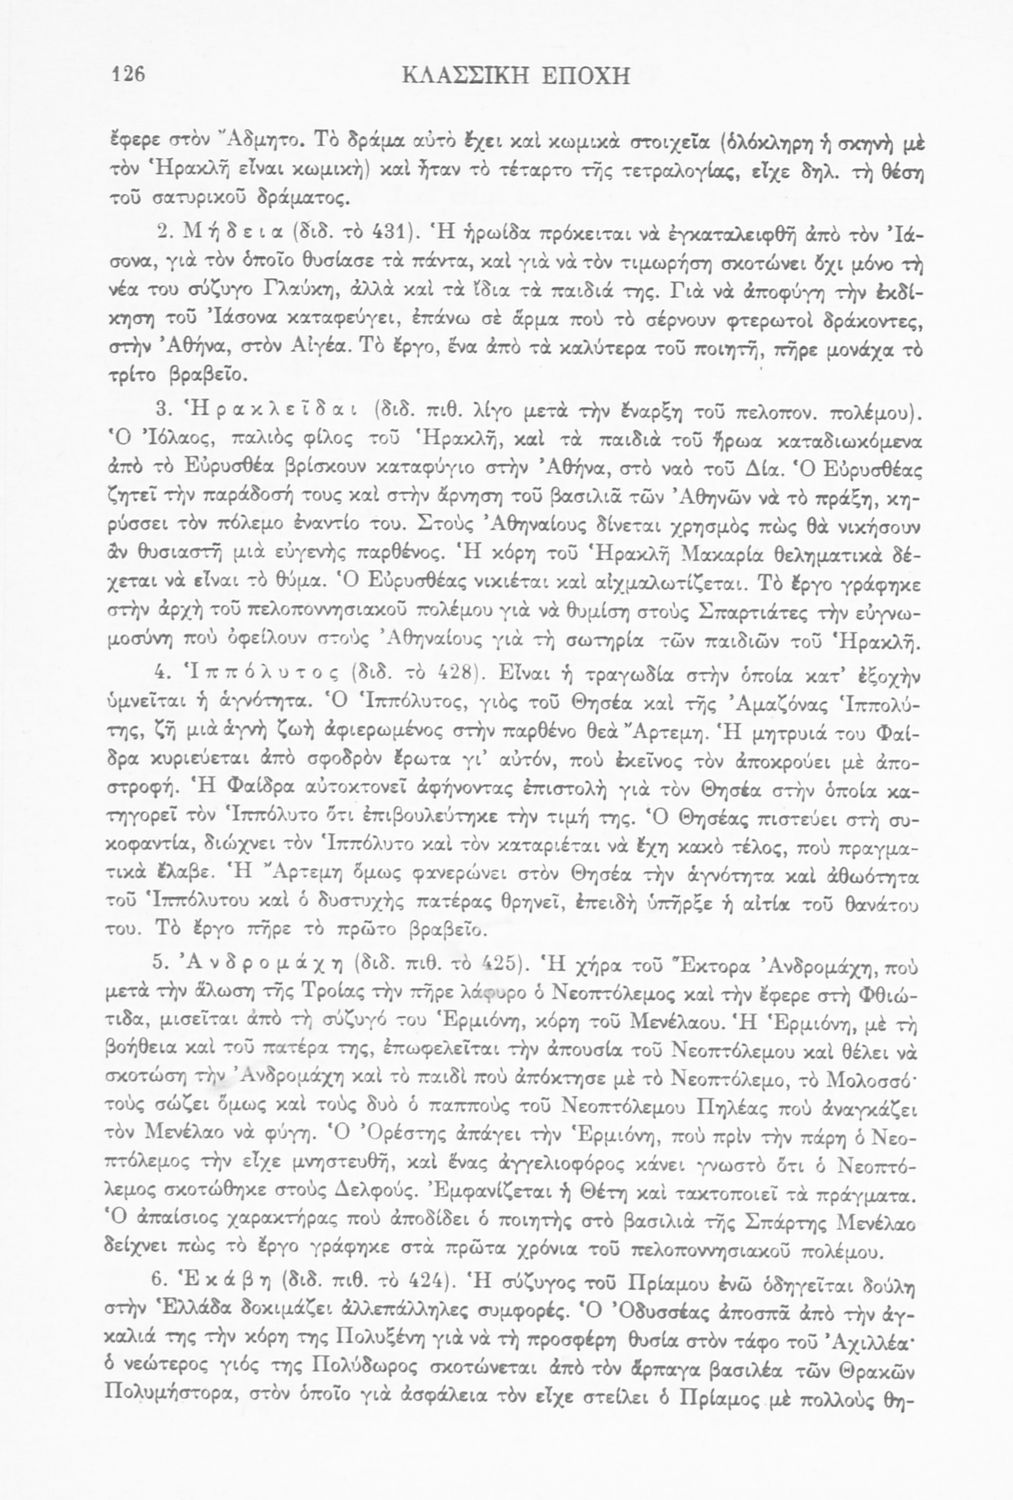 126 ΚΛΑΣΣΙΚΗ ΕΠΟΧΗ
ἔφερε στὸν Ἄδμητο. Τὸ δράμα αὐτὸ ἔχει καὶ κωμικὰ στοιχεῖα (ὁλόκληρη ἡ σκηνὴ μὲ
τὸν Ἡρακλῆ εἶναι κωμικὴ) καὶ ἦταν τὸ τέταρτο τῆς τετραλογίας, εἶχε δηλ. τὴ θέση
τοῦ σατυρικοῦ δράματος.
2. Μήδεια (διδ. τὸ 431). Ἡ ἡρωίδα πρόκειται νὰ ἐγκαταλειφθῆ ἀπὸ τὸν Ἰά-
σονα, γιὰ τὸν ὁποῖο θυσίασε τὰ πάντα, καὶ γιὰ νὰ τὸν τιμωρήση σκοτώνει ὄχι μόνο τὴ
νέα του σύζυγο Γλαύκη, ἀλλὰ καὶ τὰ ἴδια τὰ παιδιά της. Γιὰ νὰ ἀποφύγη τὴν ἐκδί-
κηση τοῦ Ἰάσονα καταφεύγει, ἐπάνω σὲ ἅρμα ποὺ τὸ σέρνουν φτερωτοὶ δράκοντες,
στὴν Ἀθήνα, στὸν Αἰγέα. Τὸ ἔργο, ἕνα ἀπὸ τὰ καλύτερα τοῦ ποιητῆ, πῆρε μονάχα τὸ
τρίτο βραβεῖο.
3. Ἡρακλεῖδαι (διδ. πιθ. λίγο μετὰ τὴν ἔναρξη τοῦ πελοπον. πολέμου).
Ὁ Ἰόλαος, παλιὸς φίλος τοῦ Ἡρακλῆ, καὶ τὰ παιδιὰ τοῦ ἥρωα καταδιωκόμενα
ἀπὸ τὸ Εὐρυσθέα βρίσκουν καταφύγιο στὴν Ἀθήνα, στὸ ναὸ τοῦ Δία. Ὁ Εὐρυσθέας
ζητεῖ τὴν παράδοσή τους καὶ στὴν ἄρνηση τοῦ βασιλιᾶ τῶν Ἀθηνῶν νὰ τὸ πράξη, κη-
ρύσσει τὸν πόλεμο ἐναντίο του. Στοὺς Ἀθηναίους δίνεται χρησμὸς πὼς θὰ νικήσουν
ἂν θυσιαστῆ μιὰ εὐγενὴς παρθένος. Ἡ κόρη τοῦ Ἡρακλῆ Μακαρία θεληματικὰ δέ-
χεται νὰ εἶναι τὸ θύμα. Ὁ Εὐρυσθέας νικιέται καὶ αἰχμαλωτίζεται. Τὸ ἔργο γράφηκε
στὴν ἀρχὴ τοῦ πελοποννησιακοῦ πολέμου γιὰ νὰ θυμίση στοὺς Σπαρτιάτες τὴν εὐγνω-
μοσύνη ποὺ ὀφείλουν στοὺς Ἀθηναίους γιὰ τὴ σωτηρία τῶν παιδιῶν τοῦ Ἡρακλῆ.
4. Ἱππόλυτος (διδ. τὸ 428). Εἶναι ἡ τραγωδία στὴν ὁποία κατ' ἐξοχὴν
ὑμνεῖται ἡ ἁγνότητα. Ὁ Ἱππόλυτος, γιὸς τοῦ Θησέα καὶ τῆς Ἀμαζόνας Ἱππολύ-
της, ζῆ μιὰ ἁγνὴ ζωὴ ἀφιερωμένος στὴν παρθένο θεὰ Ἄρτεμη. Ἡ μητρυιά του Φαί-
δρα κυριεύεται ἀπὸ σφοδρὸν ἔρωτα γι' αὐτόν, ποὺ ἐκεῖνος τὸν ἀποκρούει μὲ ἀπο-
στροφή. Ἡ Φαίδρα αὐτοκτονεῖ ἀφήνοντας ἐπιστολὴ γιὰ τὸν Θησέα στὴν ὁποία κα-
τηγορεῖ τὸν Ἱππόλυτο ὅτι ἐπιβουλεύτηκε τὴν τιμή της. Ὁ Θησέας πιστεύει στὴ συ-
κοφαντία, διώχνει τὸν Ἱππόλυτο καὶ τὸν καταριέται νὰ ἔχη κακὸ τέλος, ποὺ πραγμα-
τικὰ ἔλαβε. Ἡ Ἄρτεμη ὅμως φανερώνει στὸν Θησέα τὴν ἁγνότητα καὶ ἀθωότητα
τοῦ Ἱππόλυτου καὶ ὁ δυστυχὴς πατέρας θρηνεῖ, ἐπειδὴ ὑπῆρξε ἡ αἰτία τοῦ θανάτου
του. Τὸ ἔργο πῆρε τὸ πρῶτο βραβεῖο.
5. Ἀνδρομάχη (διδ. πιθ. τὸ 425). Ἡ χήρα τοῦ Ἕκτορα Ἀνδρομάχη, ποὺ
μετὰ τὴν ἅλωση τῆς Τροίας τὴν πῆρε λάφυρο ὁ Νεοπτόλεμος καὶ τὴν ἔφερε στὴ Φθιώ-
τιδα, μισεῖται ἀπὸ τὴ σύζυγό του Ἑρμιόνη, κόρη τοῦ Μενέλαου. Ἡ Ἑρμιόνη, μὲ τὴ
βοήθεια καὶ τοῦ πατέρα της, ἐπωφελεῖται τὴν ἀπουσία τοῦ Νεοπτόλεμου καὶ θέλει νὰ
σκοτώση τὴν Ἀνδρομάχη καὶ τὸ παιδὶ ποὺ ἀπόκτησε μὲ τὸ Νεοπτόλεμο, τὸ Μολοσσό·
τοὺς σώζει ὅμως καὶ τοὺς δυὸ ὁ παπποὺς τοῦ Νεοπτόλεμου Πηλέας ποὺ ἀναγκάζει
τὸν Μενέλαο νὰ φύγη. Ὁ Ὀρέστης ἀπάγει τὴν Ἑρμιόνη, ποὺ πρὶν τὴν πάρη ὁ Νεο-
πτόλεμος τὴν εἶχε μνηστευθῆ, καὶ ἕνας ἀγγελιοφόρος κάνει γνωστὸ ὅτι ὁ Νεοπτό-
λεμος σκοτώθηκε στοὺς Δελφούς. Ἐμφανίζεται ἡ Θέτη καὶ τακτοποιεῖ τὰ πράγματα.
Ὁ ἀπαίσιος χαρακτήρας ποὺ ἀποδίδει ὁ ποιητὴς στὸ βασιλιὰ τῆς Σπάρτης Μενέλαο
δείχνει πὼς τὸ ἔργο γράφηκε στὰ πρῶτα χρόνια τοῦ πελοποννησιακοῦ πολέμου.
6. Ἑκάβη (διδ. πιθ. τὸ 424). Ἡ σύζυγος τοῦ Πρίαμου ἐνῶ ὁδηγεῖται δούλη
στὴν Ἑλλάδα δοκιμάζει ἀλλεπάλληλες συμφορές. Ὁ Ὀδυσσέας ἀποσπᾶ ἀπὸ τὴν ἀγ-
καλιά της τὴν κόρη της Πολυξένη γιὰ νὰ τὴ προσφέρη θυσία στὸν τάφο τοῦ Ἀχιλλέα·
ὁ νεώτερος γιός της Πολύδωρος σκοτώνεται ἀπὸ τὸν ἅρπαγα βασιλέα τῶν Θρακῶν
Πολυμήστορα, στὸν ὁποῖο γιὰ ἀσφάλεια τὸν εἶχε στείλει ὁ Πρίαμος μὲ πολλοὺς θη-